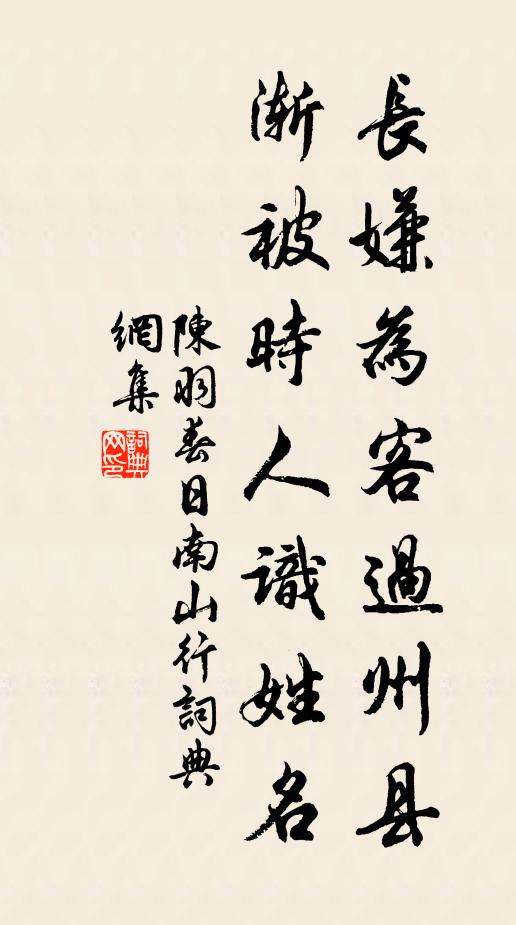 長嫌為客過州县
漸被時人識姓名
陳羽春日南山行詞典
網集
詞典
网印